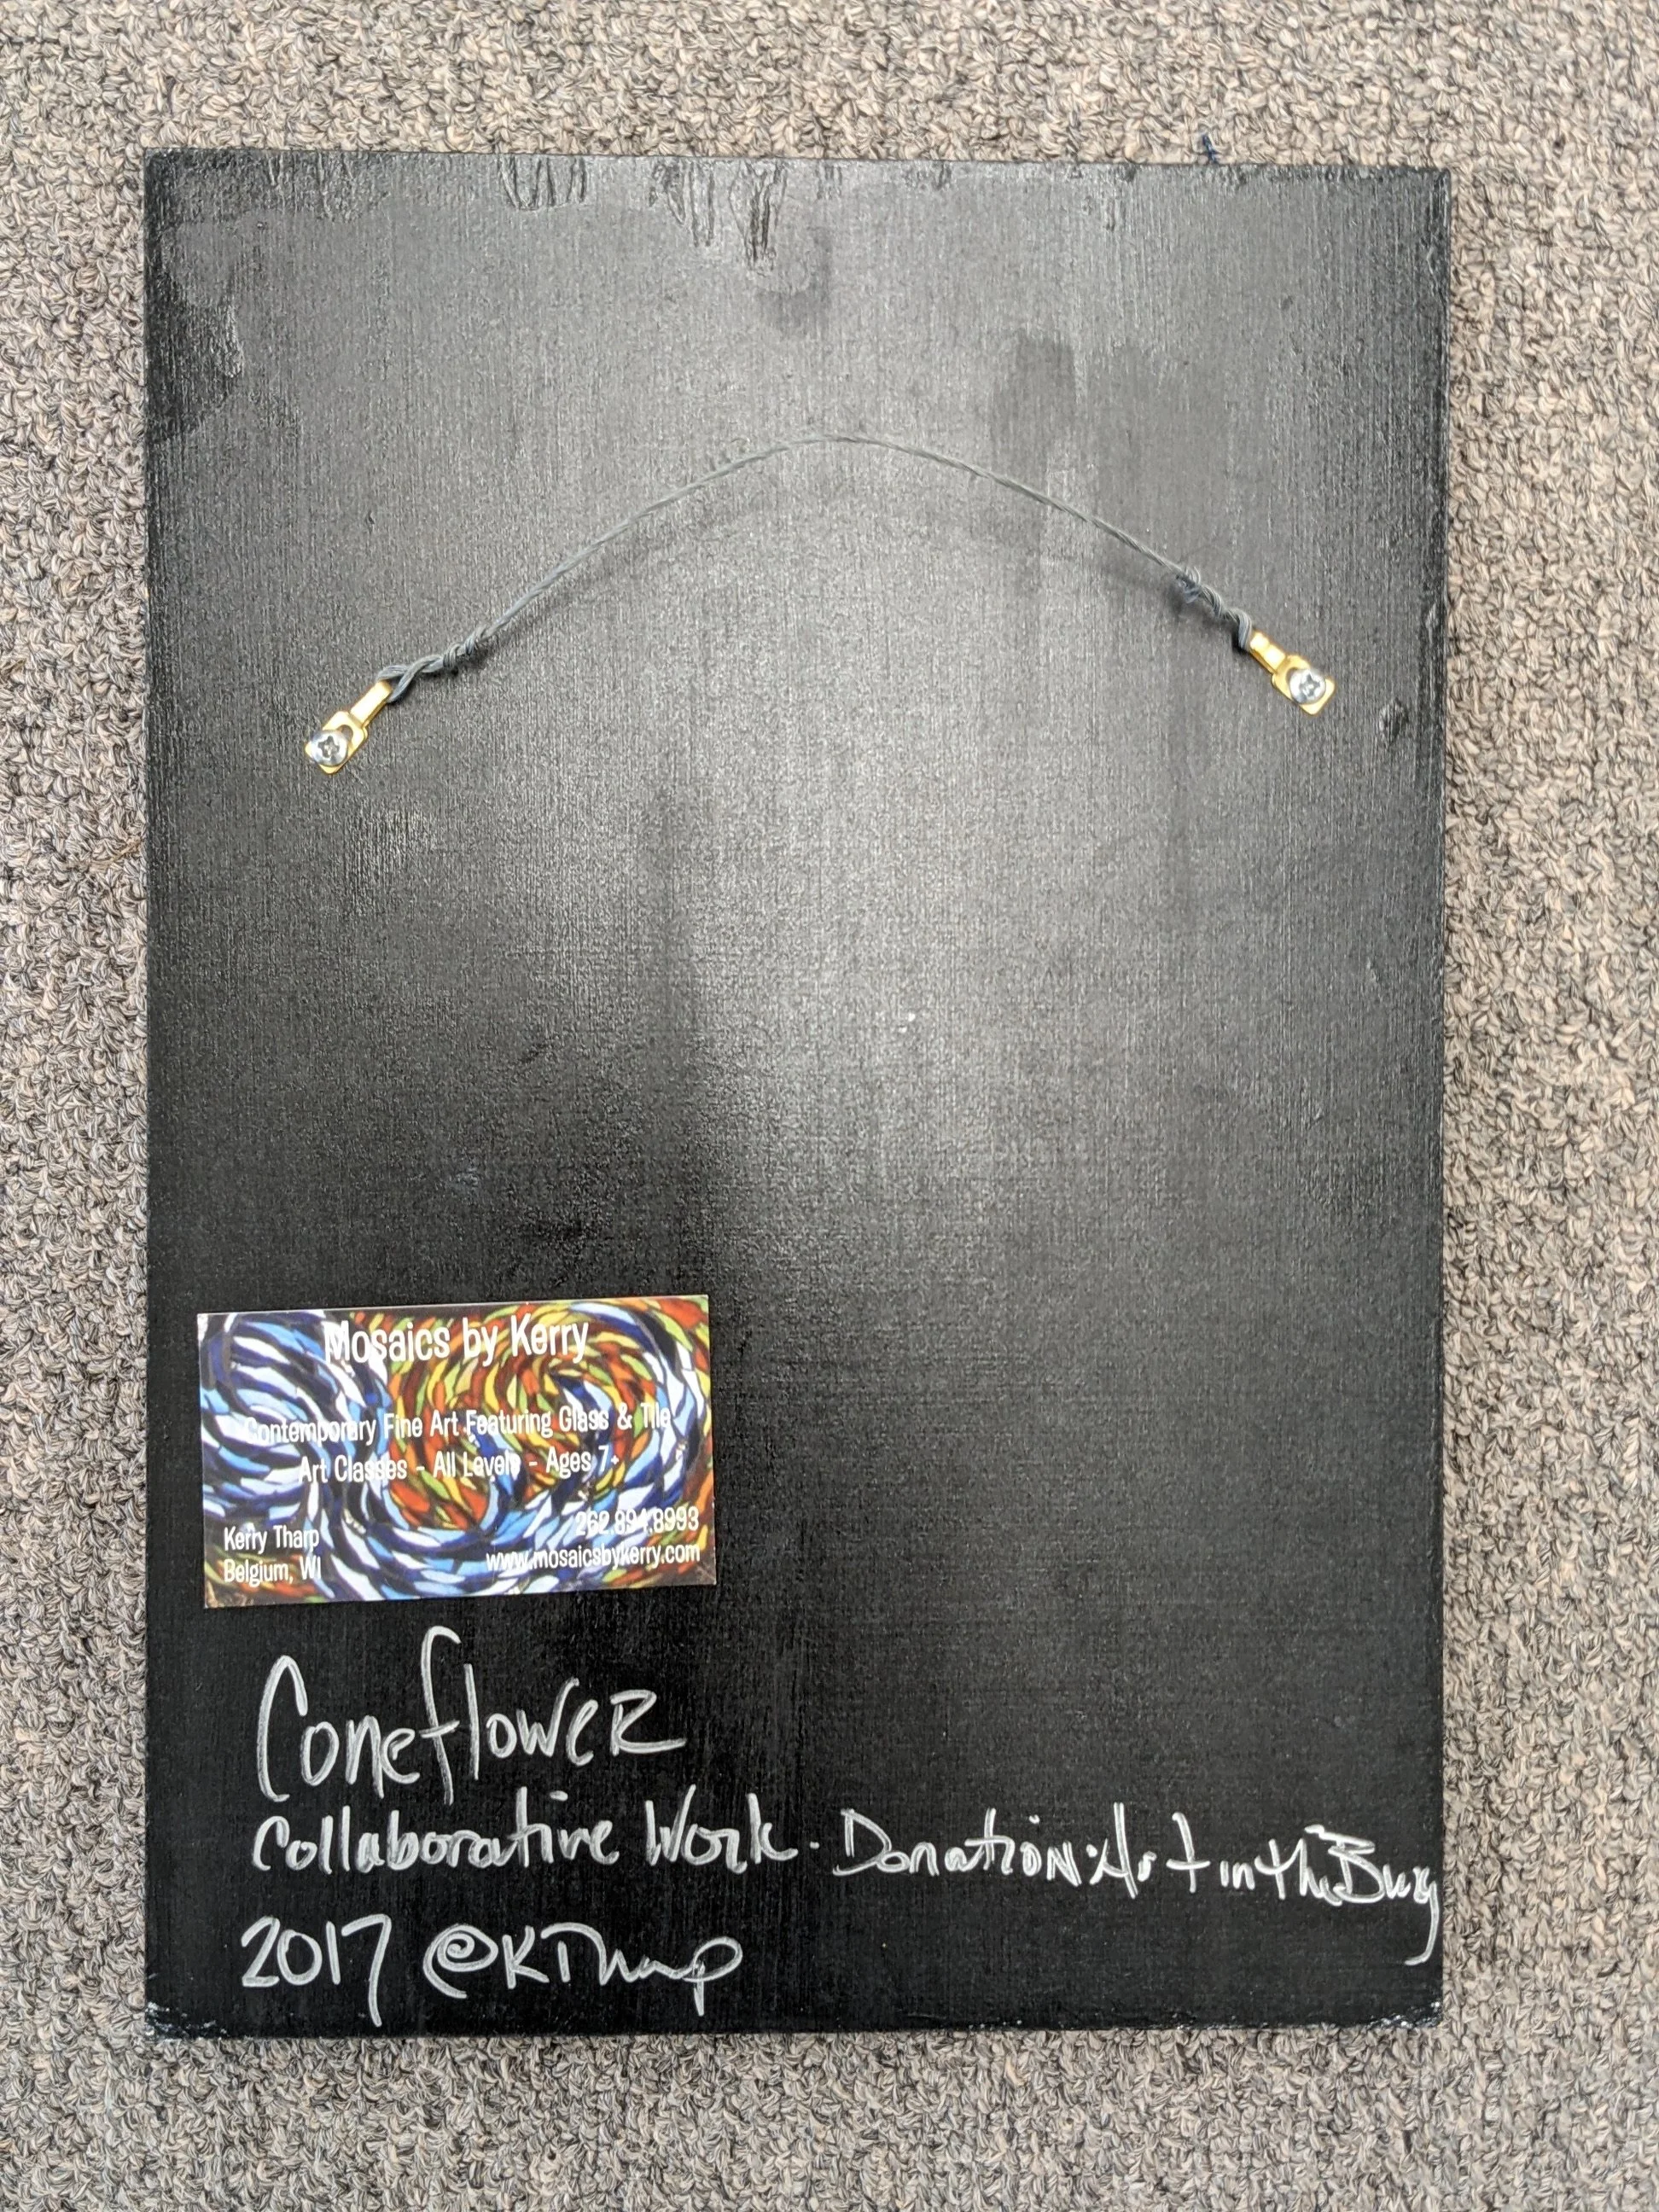 Mosaics by Kerry
Contemporary Fine Art Featuring Glass & Tile
Art Classes - All Levels - Ages 7+
Kerry Tharp
Belgium, WI
262.894.8993
www.mosaicsbykerry.com
Coneflower
Collaborative Work - Donation: Art in the Burg
2017 @KTharp